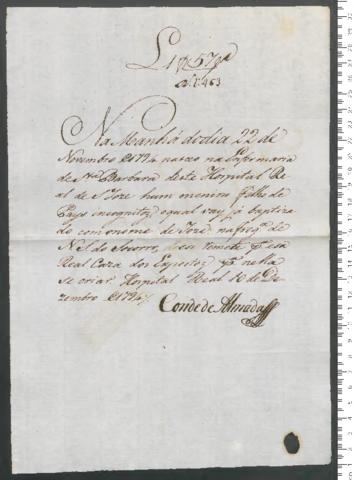 Na Manhã do dia 22 de
Novembro de 1794 nasceo na Infirmaria
de Sta Barbara deste Hospital Re
al de S. Joze hum menino filho de
Pays incognitos, e qual vay ja baptiza
do com o nome de Joze na freg.a de
N. S. do Socorro, se remete p.a essa
Real Caza dos Expostos, p.a nella
se criar. Hospital Real 10 de De
zembro de 1794
Conde de Almada